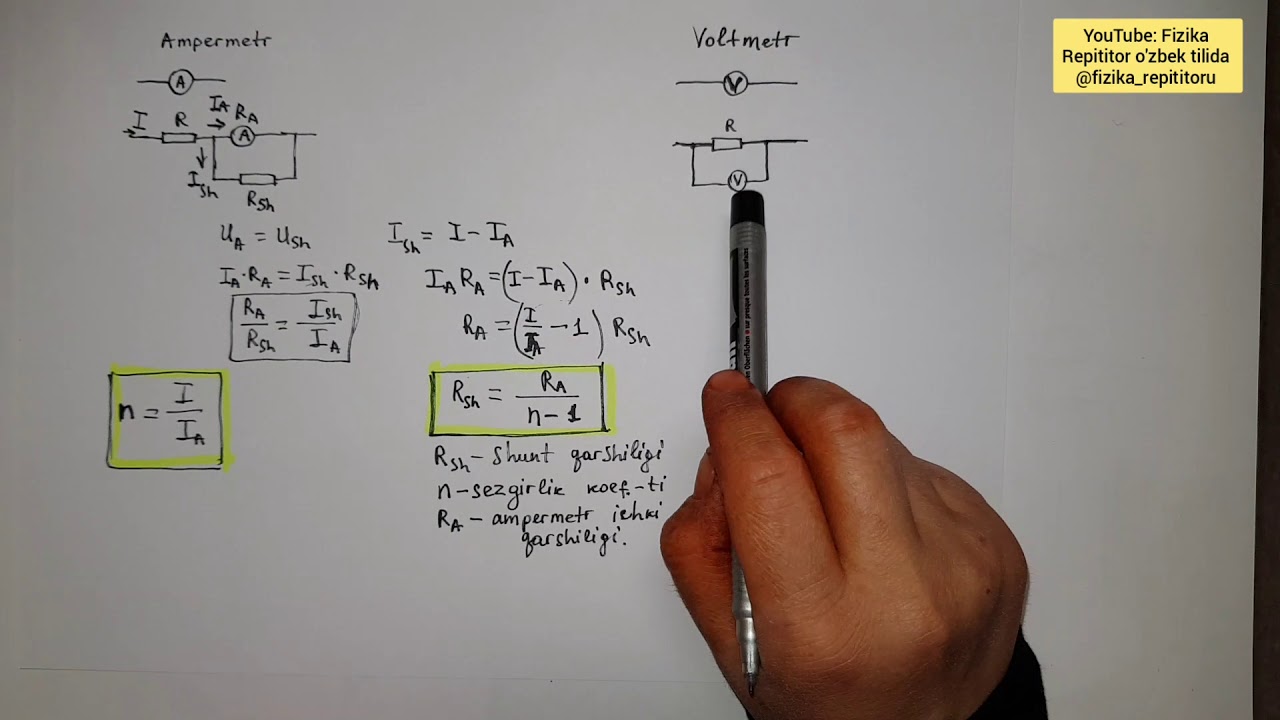 YouTube: Fizika
Repititor o'zbek tilida
@fizika_repititoru
Ampermetr
A
I R I_A R_A
A
I_sh
R_sh
U_A = U_sh
I_A · R_A = I_sh · R_sh
R_A / R_sh = I_sh / I_A
n = I / I_A
I_sh = I - I_A
I_A R_A = (I - I_A) · R_sh
R_A = (I / I_A - 1) R_sh
R_sh = R_A / (n - 1)
R_sh - shunt qarshiligi
n - sezgirlik koef.-ti
R_A - ampermetr ichki
qarshiligi.
Voltmetr
V
R
V